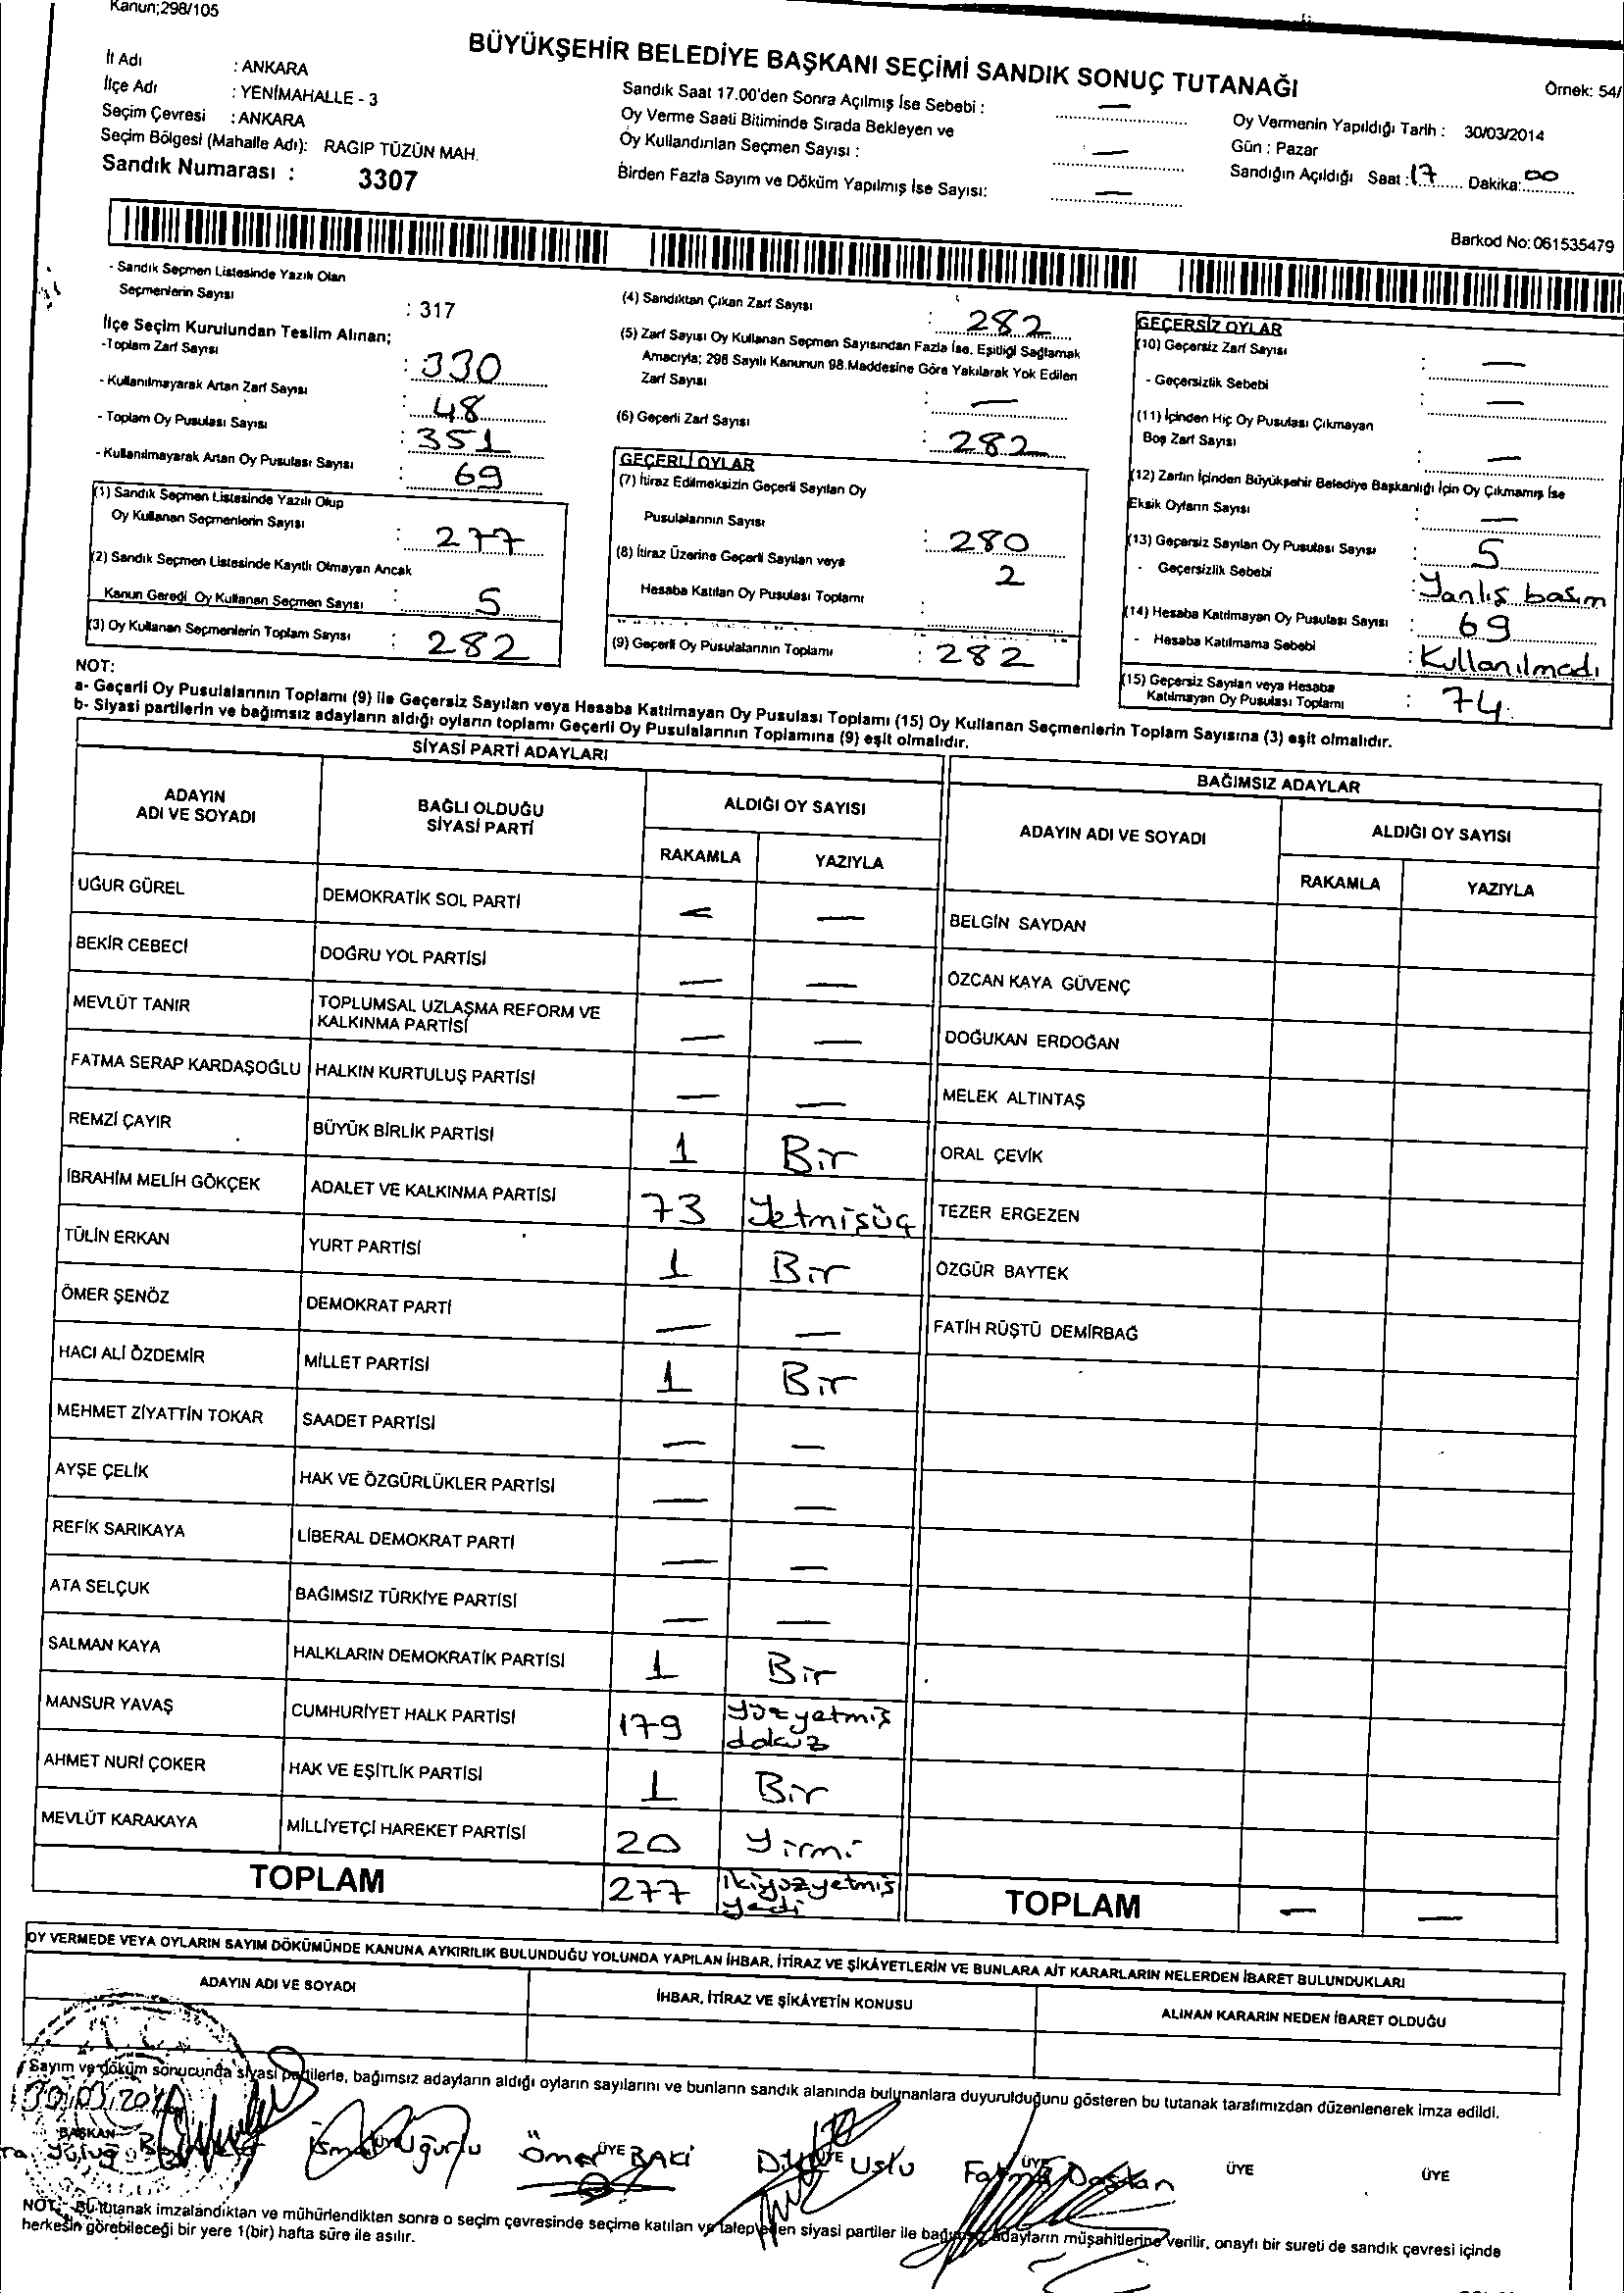 Kanun;298/105
BÜYÜKŞEHİR BELEDİYE BAŞKANI SEÇİMİ SANDIK SONUÇ TUTANAĞI
Örnek: 54/
İl Adı : ANKARA
İlçe Adı : YENİMAHALLE - 3
Seçim Çevresi : ANKARA
Seçim Bölgesi (Mahalle Adı): RAGIP TÜZÜN MAH.
Sandık Numarası : 3307
Sandık Saat 17.00'den Sonra Açılmış İse Sebebi : —
Oy Verme Saati Bitiminde Sırada Bekleyen ve
Oy Kullandırılan Seçmen Sayısı : —
Birden Fazla Sayım ve Döküm Yapılmış İse Sayısı: —
Oy Vermenin Yapıldığı Tarih : 30/03/2014
Gün : Pazar
Sandığın Açıldığı Saat : 17 Dakika: 00
Barkod No: 061535479
- Sandık Seçmen Listesinde Yazılı Olan
Seçmenlerin Sayısı : 317
İlçe Seçim Kurulundan Teslim Alınan;
-Toplam Zarf Sayısı : 330
- Kullanılmayarak Artan Zarf Sayısı : 48
- Toplam Oy Pusulası Sayısı : 351
- Kullanılmayarak Artan Oy Pusulası Sayısı : 69
(1) Sandık Seçmen Listesinde Yazılı Olup
Oy Kullanan Seçmenlerin Sayısı : 277
(2) Sandık Seçmen Listesinde Kayıtlı Olmayan Ancak
Kanun Gereği Oy Kullanan Seçmen Sayısı : 5
(3) Oy Kullanan Seçmenlerin Toplam Sayısı : 282
(4) Sandıktan Çıkan Zarf Sayısı : 282
(5) Zarf Sayısı Oy Kullanan Seçmen Sayısından Fazla İse, Eşitliği Sağlamak
Amacıyla; 298 Sayılı Kanunun 98.Maddesine Göre Yakılarak Yok Edilen
Zarf Sayısı : —
(6) Geçerli Zarf Sayısı : 282
GEÇERLİ OYLAR
(7) İtiraz Edilmeksizin Geçerli Sayılan Oy
Pusulalarının Sayısı : 280
(8) İtiraz Üzerine Geçerli Sayılan veya
Hesaba Katılan Oy Pusulası Toplamı : 2
(9) Geçerli Oy Pusulalarının Toplamı : 282
GEÇERSİZ OYLAR
(10) Geçersiz Zarf Sayısı : —
- Geçersizlik Sebebi : —
(11) İçinden Hiç Oy Pusulası Çıkmayan
Boş Zarf Sayısı : —
(12) Zarfın İçinden Büyükşehir Belediye Başkanlığı İçin Oy Çıkmamış İse
Eksik Oyların Sayısı : —
(13) Geçersiz Sayılan Oy Pusulası Sayısı : 5
- Geçersizlik Sebebi : Yanlış basım
(14) Hesaba Katılmayan Oy Pusulası Sayısı : 69
- Hesaba Katılmama Sebebi : Kullanılmadı
(15) Geçersiz Sayılan veya Hesaba
Katılmayan Oy Pusulası Toplamı : 74
NOT:
a- Geçerli Oy Pusulalarının Toplamı (9) ile Geçersiz Sayılan veya Hesaba Katılmayan Oy Pusulası Toplamı (15) Oy Kullanan Seçmenlerin Toplam Sayısına (3) eşit olmalıdır.
b- Siyasi partilerin ve bağımsız adayların aldığı oyların toplamı Geçerli Oy Pusulalarının Toplamına (9) eşit olmalıdır.
SİYASİ PARTİ ADAYLARI
ADAYIN ADI VE SOYADI
BAĞLI OLDUĞU SİYASİ PARTİ
ALDIĞI OY SAYISI
RAKAMLA YAZIYLA
UĞUR GÜREL DEMOKRATİK SOL PARTİ — —
BEKİR CEBECİ DOĞRU YOL PARTİSİ — —
MEVLÜT TANIR TOPLUMSAL UZLAŞMA REFORM VE KALKINMA PARTİSİ — —
FATMA SERAP KARDAŞOĞLU HALKIN KURTULUŞ PARTİSİ — —
REMZİ ÇAYIR BÜYÜK BİRLİK PARTİSİ 1 Bir
İBRAHİM MELİH GÖKÇEK ADALET VE KALKINMA PARTİSİ 73 Yetmişüç
TÜLİN ERKAN YURT PARTİSİ 1 Bir
ÖMER ŞENÖZ DEMOKRAT PARTİ — —
HACI ALİ ÖZDEMİR MİLLET PARTİSİ 1 Bir
MEHMET ZİYATTİN TOKAR SAADET PARTİSİ — —
AYŞE ÇELİK HAK VE ÖZGÜRLÜKLER PARTİSİ — —
REFİK SARIKAYA LİBERAL DEMOKRAT PARTİ — —
ATA SELÇUK BAĞIMSIZ TÜRKİYE PARTİSİ — —
SALMAN KAYA HALKLARIN DEMOKRATİK PARTİSİ 1 Bir
MANSUR YAVAŞ CUMHURİYET HALK PARTİSİ 179 yüzyetmiş dokuz
AHMET NURİ ÇOKER HAK VE EŞİTLİK PARTİSİ 1 Bir
MEVLÜT KARAKAYA MİLLİYETÇİ HAREKET PARTİSİ 20 yirmi
TOPLAM 277 ikiyüzyetmiş yedi
BAĞIMSIZ ADAYLAR
ADAYIN ADI VE SOYADI
ALDIĞI OY SAYISI
RAKAMLA YAZIYLA
BELGİN SAYDAN
ÖZCAN KAYA GÜVENÇ
DOĞUKAN ERDOĞAN
MELEK ALTINTAŞ
ORAL ÇEVİK
TEZER ERGEZEN
ÖZGÜR BAYTEK
FATİH RÜŞTÜ DEMİRBAĞ
TOPLAM — —
OY VERMEDE VEYA OYLARIN SAYIM DÖKÜMÜNDE KANUNA AYKIRILIK BULUNDUĞU YOLUNDA YAPILAN İHBAR, İTİRAZ VE ŞİKÂYETLERİN VE BUNLARA AİT KARARLARIN NELERDEN İBARET BULUNDUKLARI
ADAYIN ADI VE SOYADI
İHBAR, İTİRAZ VE ŞİKÂYETİN KONUSU
ALINAN KARARIN NEDEN İBARET OLDUĞU
Sayım ve döküm sonucunda siyasi partilerle, bağımsız adayların aldığı oyların sayılarını ve bunların sandık alanında bulunanlara duyurulduğunu gösteren bu tutanak tarafımızdan düzenlenerek imza edildi.
30.03.2014
BAŞKAN ÜYE ÜYE ÜYE ÜYE ÜYE ÜYE
Uğurlu Ömer BAKİ Uslu Fatma Daştan
NOT: Bu tutanak imzalandıktan ve mühürlendikten sonra o seçim çevresinde seçime katılan ve talep eden siyasi partiler ile bağımsız adayların müşahitlerine verilir, onaylı bir sureti de sandık çevresi içinde
herkesin görebileceği bir yere 1(bir) hafta süre ile asılır.